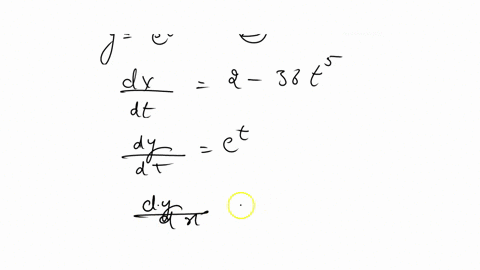 y = e
dx/dt = 2 - 36 t^5
dy/dt = e^t
dy/dx